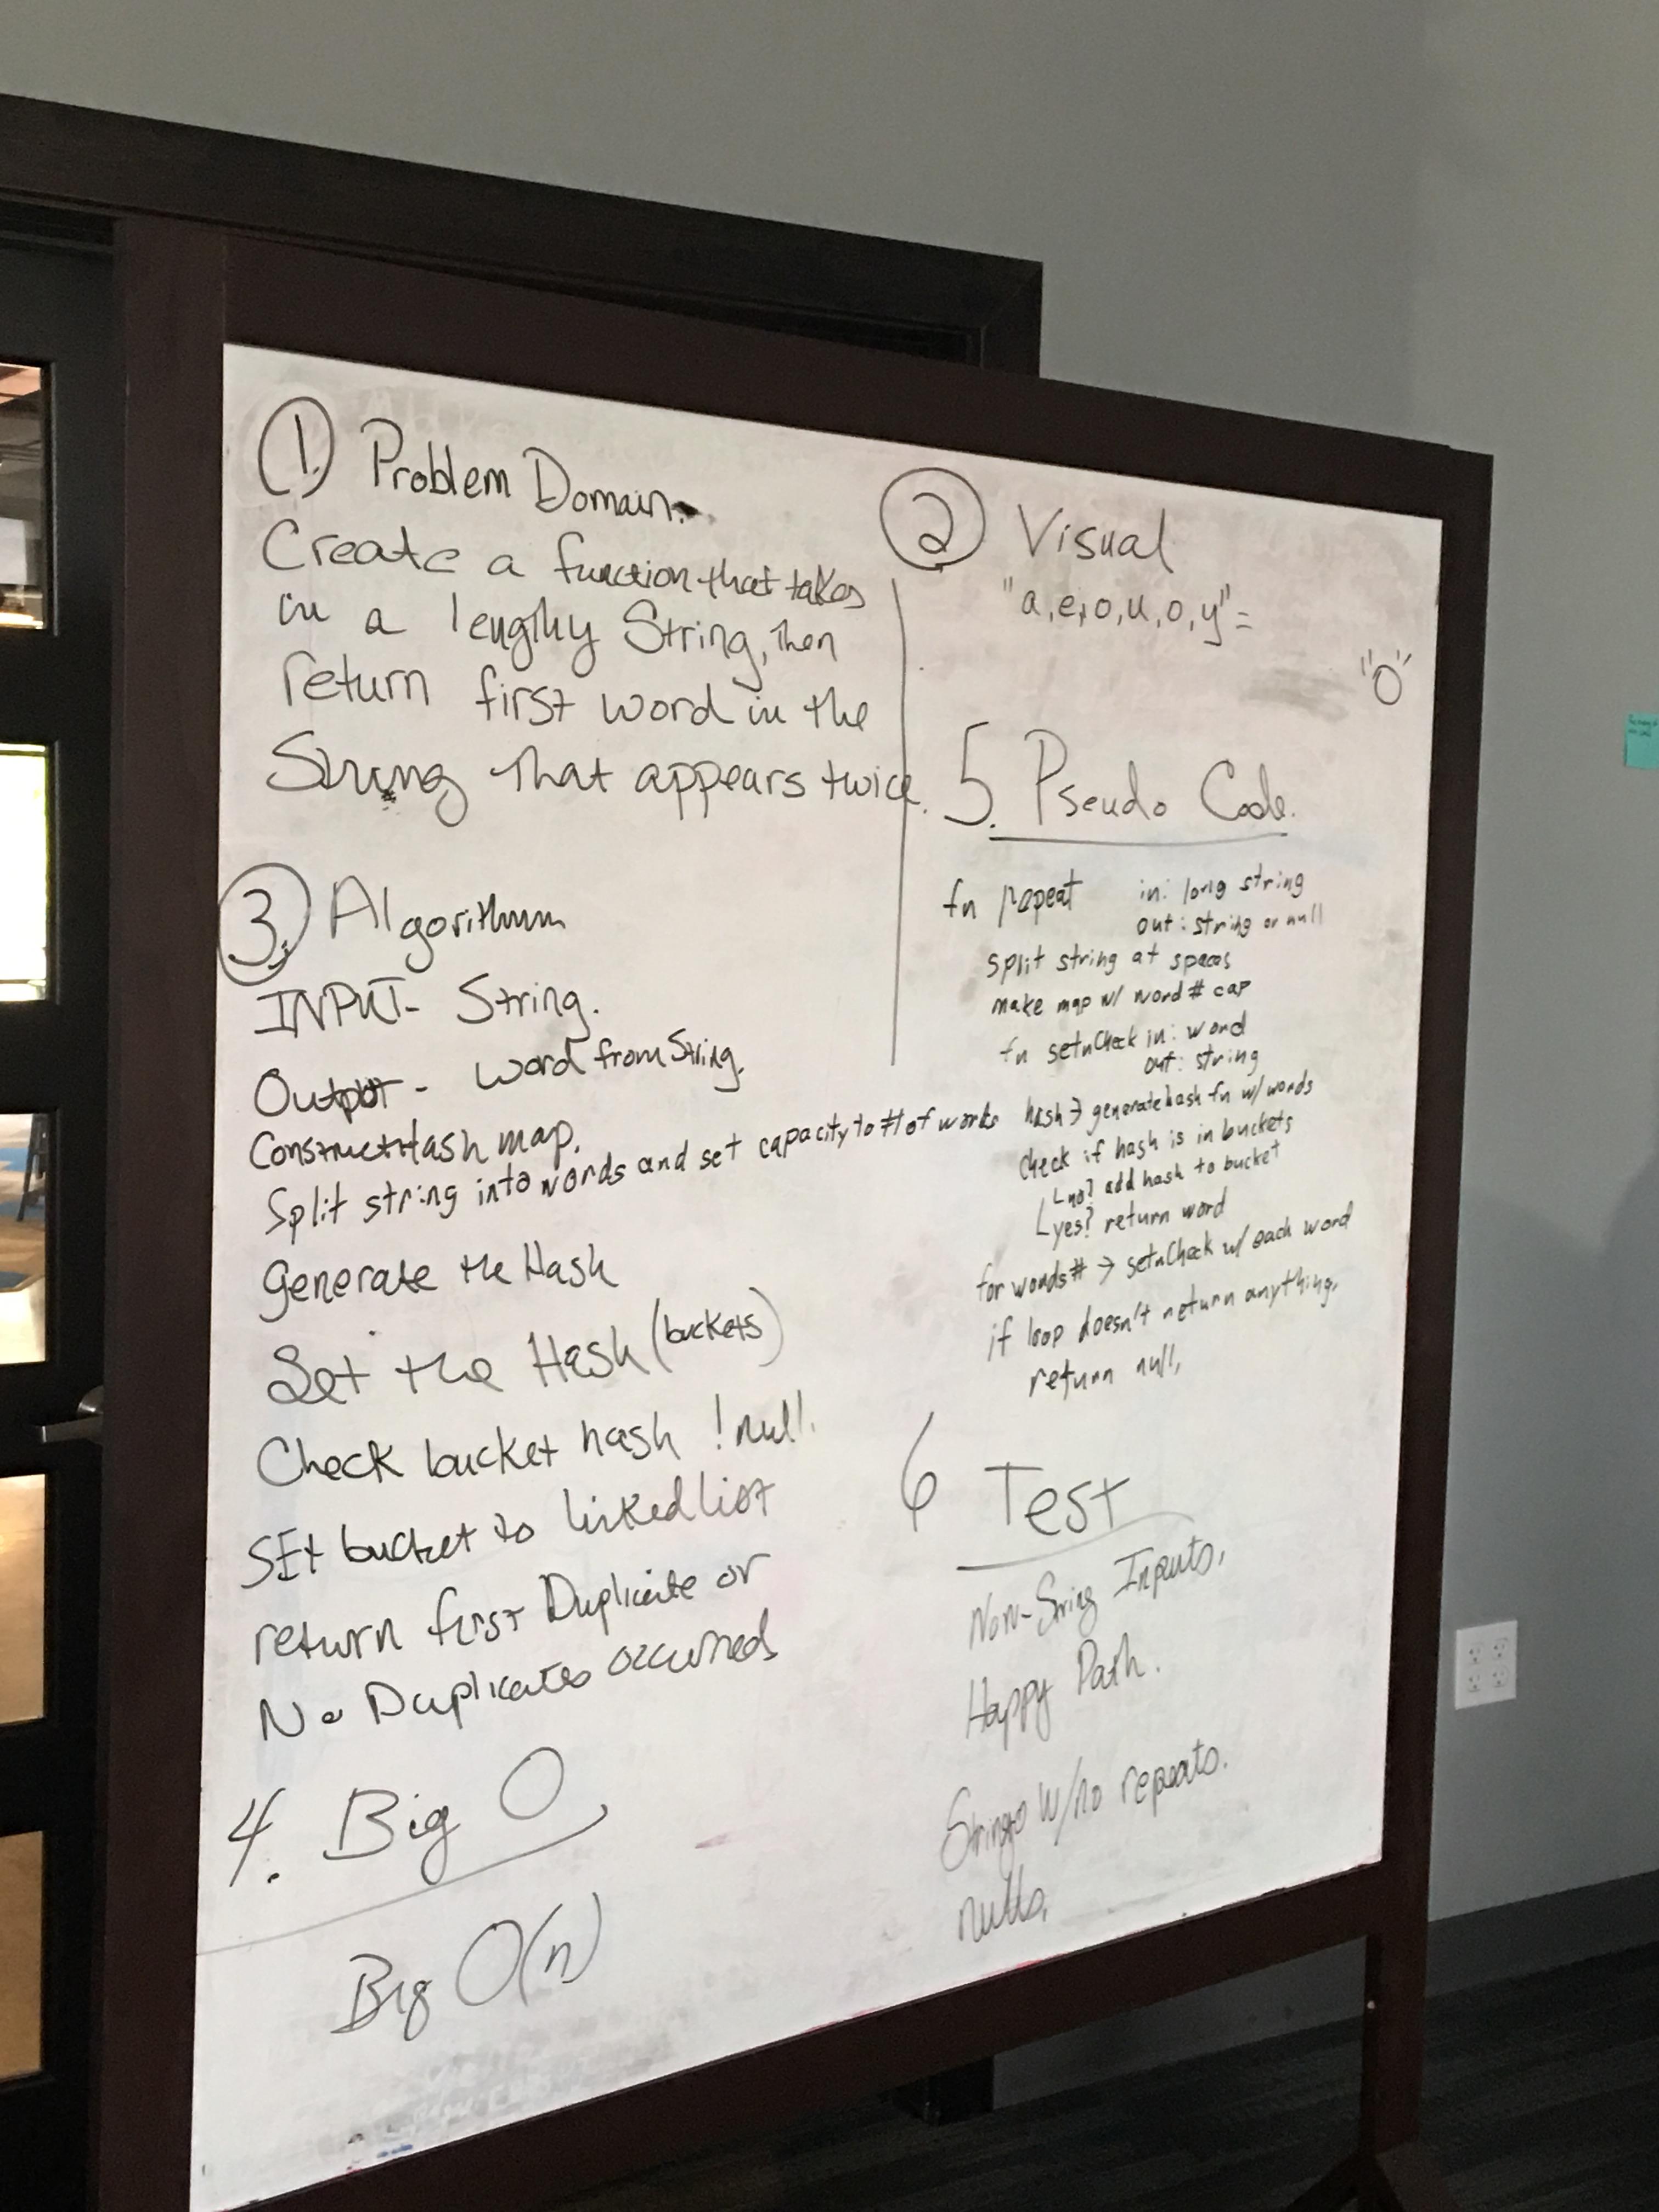 1.) Problem Domain.
Create a function that takes
in a lengthy String, then
return first word in the
String that appears twice.
2. Visual
"a,e,i,o,u,o,y" =
"o"
3. Algorithmm
INPUT- String.
Output - word from String.
Construct Hash map.
Split string into words and set capacity to # of words
generate the Hash
Set the Hash (buckets)
Check bucket hash !null.
SEt bucket to linked list
return first Duplicate or
No Duplicates occurred
4. Big O
Big O(n)
5. Pseudo Code.
fn repeat in: long string
out: string or null
split string at spaces
make map w/ word # cap
fn setnCheck in: word
out: string
hash → generate hash fn w/ words
check if hash is in buckets
no? add hash to bucket
yes? return word
for words # → setnCheck w/ each word
if loop doesn't return anything,
return null,
6 Test
Non-String Inputs,
Happy Path.
Strings w/no repeats.
nulls,